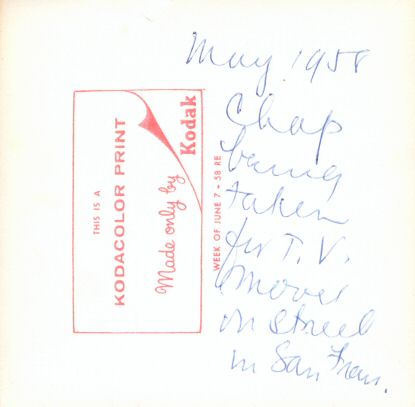 May 1958
Chap
being
taken
for T.V.
movei
on street
in San Fran.
THIS IS A
KODACOLOR PRINT
Made only by
Kodak
WEEK OF JUNE 7 - 58 RE